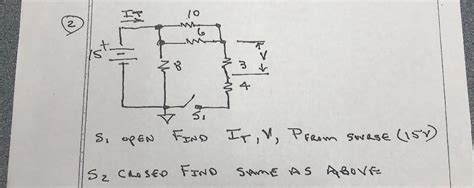 2
IT
10
6
15
+
8
V
3
4
S1
S1 OPEN FIND IT, V, PFROM SOURSE (15V)
S2 CLOSED FIND SAME AS ABOVE